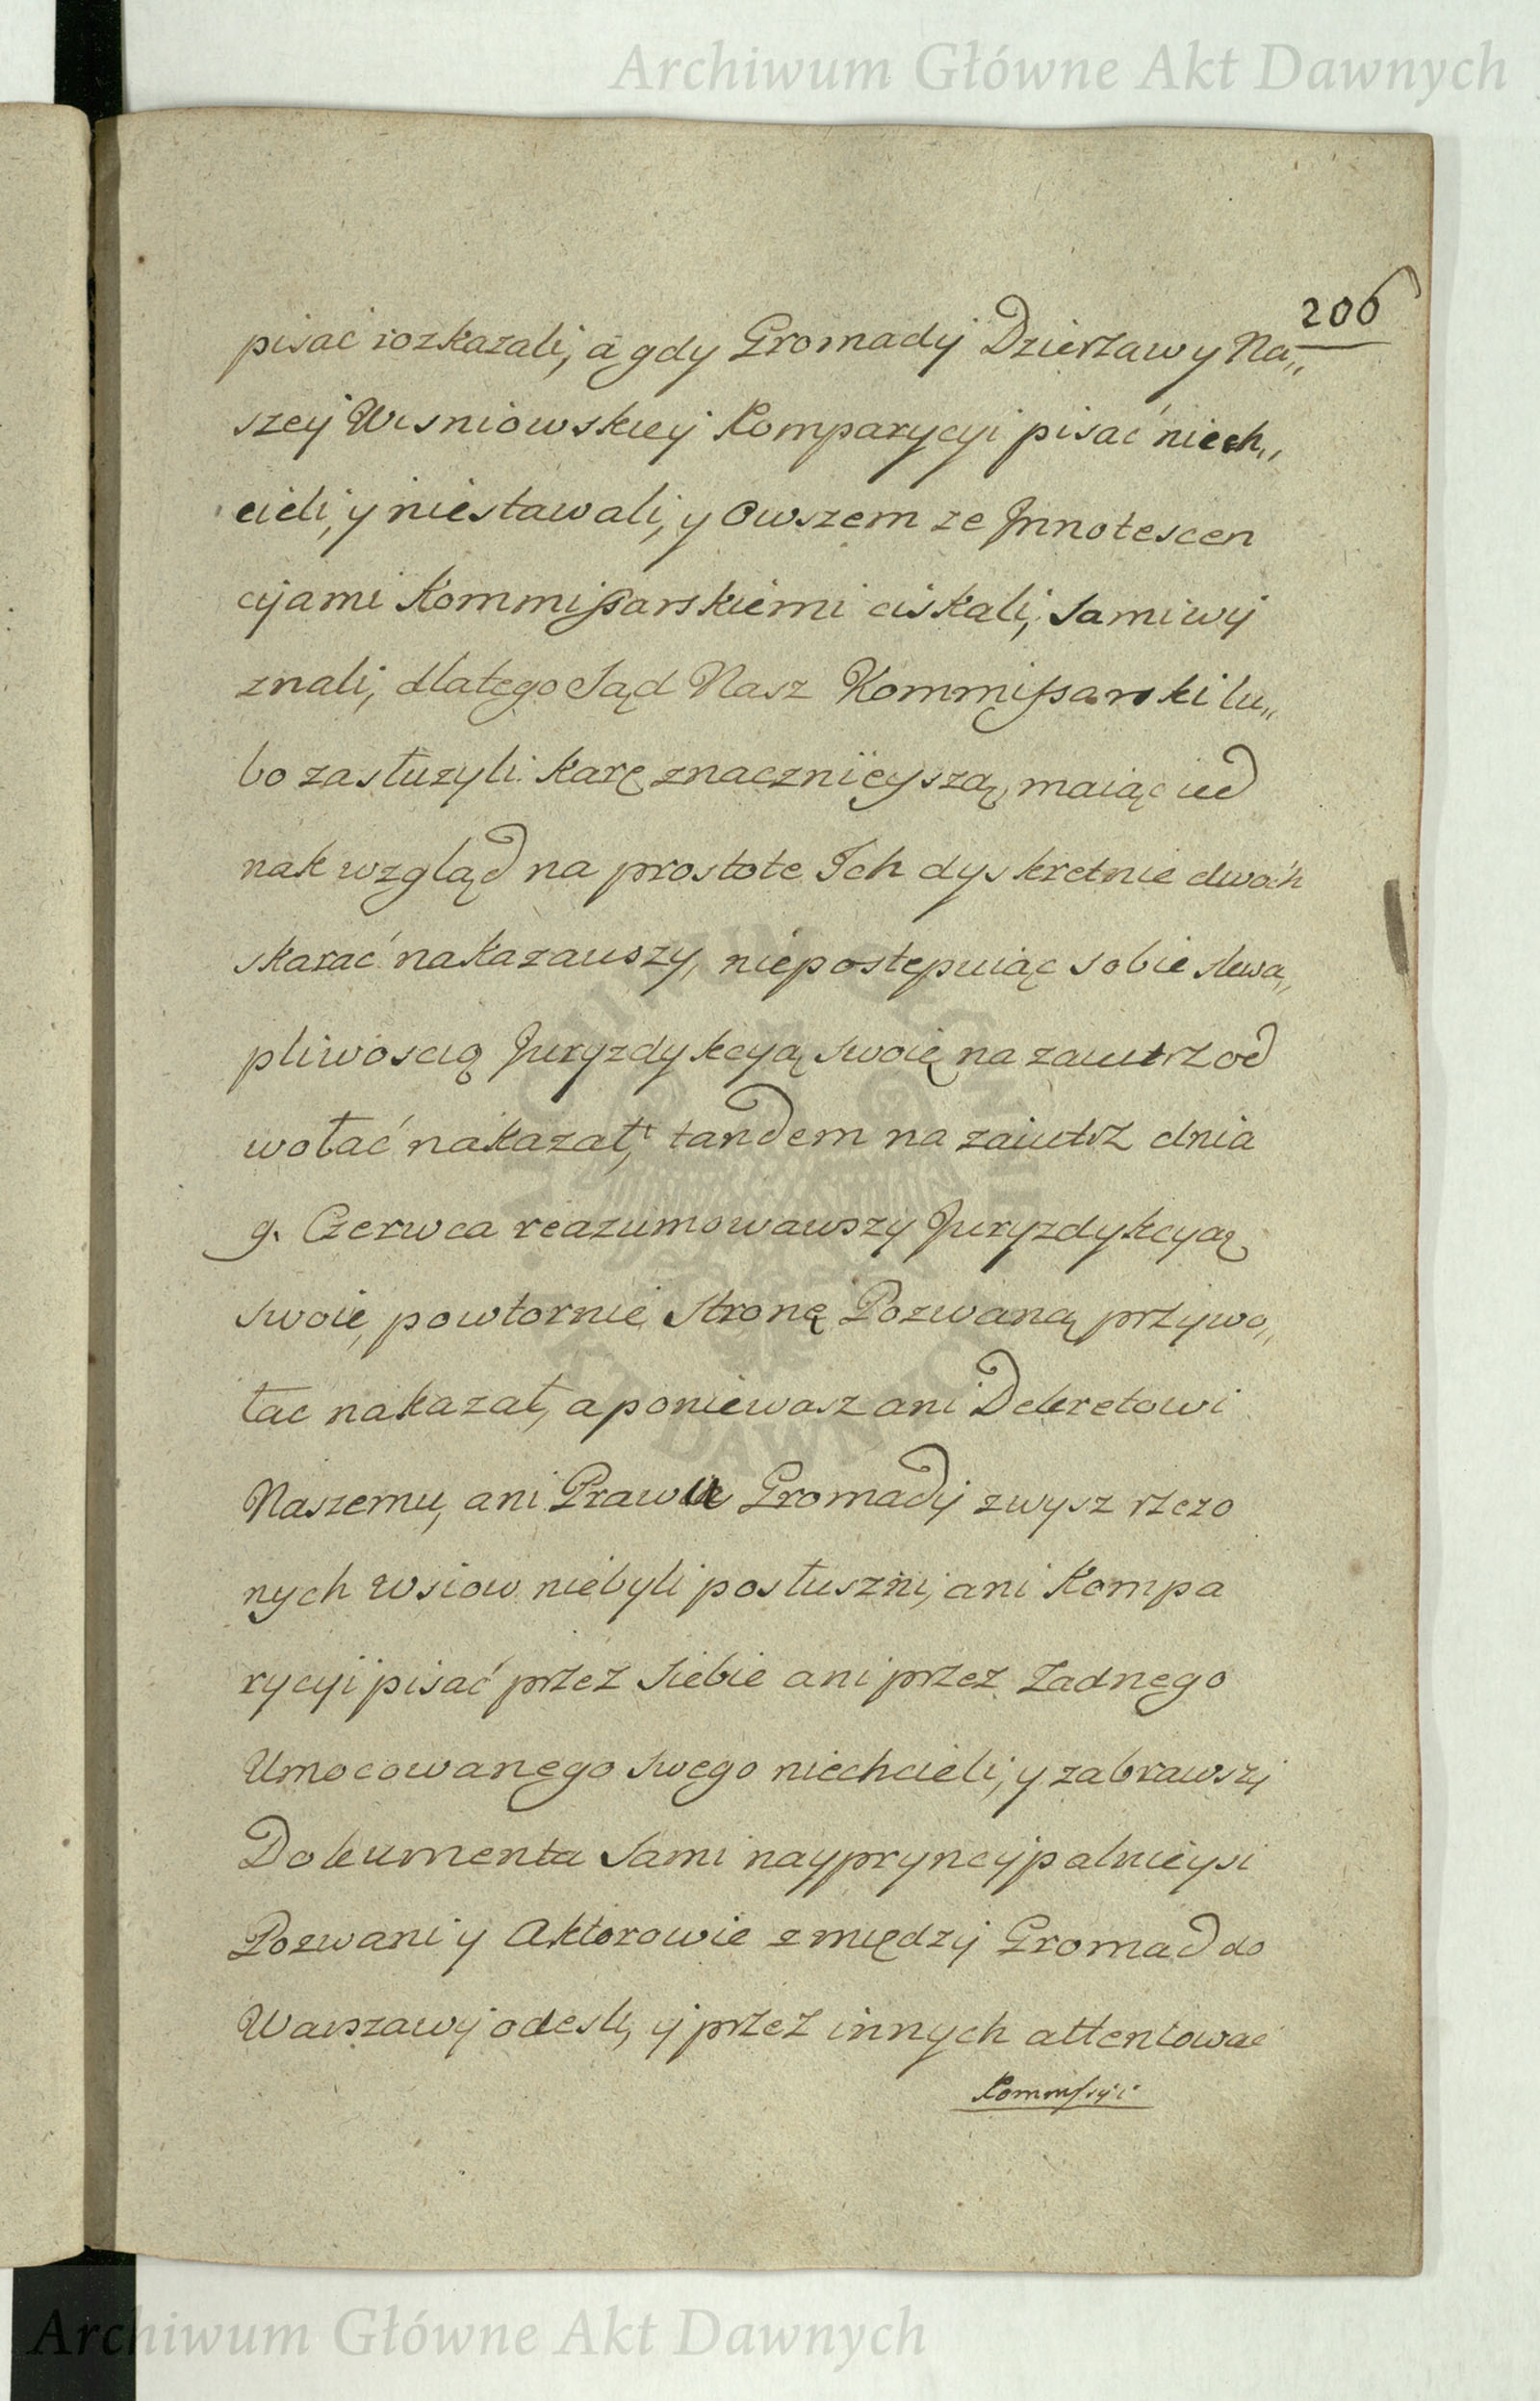 Archiwum Główne Akt Dawnych
206
pisać rozkazali, a gdy Gromady Dzierżawy Na„
szey Wisniowskiey Komparycyi pisać niech„
cieli, y niestawali, y Owszem ze Jnnotescen
cyjami Kommißarskiemi ciskali, sami wy
znali, dlatego Sąd Nasz Kommißarski lu„
bo zasłuzyli karę znacznieyszą, maiąc ied
nak wzgląd na prostote Ich dyskretnie dwóch
skarać nakazawszy, niepostępuiąc sobie skwa„
pliwoscią Juryzdykcyą swoię na zaiutrz od
wołać nakazał, tandem na zaiutrz dnia
9. Czerwca reazumowawszy Juryzdykcyą
swoię, powtornie Stronę Pozwaną przywo„
łac nakazał, a poniewasz ani Dekretowi
Naszemu, ani Prawu Gromady zwysz rzczo
nych Wsiow niebyli posłuszni, ani Kompa
rycyi pisać przez siebie ani przez żadnego
Umocowanego swego niechcieli, y zabrawszy
Dokumenta sami naypryncypalnieysi
Pozwani y Aktorowie zmiędzy Gromad do
Warszawy odeszli, y przez innych attentować
Kommissyi
Archiwum Główne Akt Dawnych